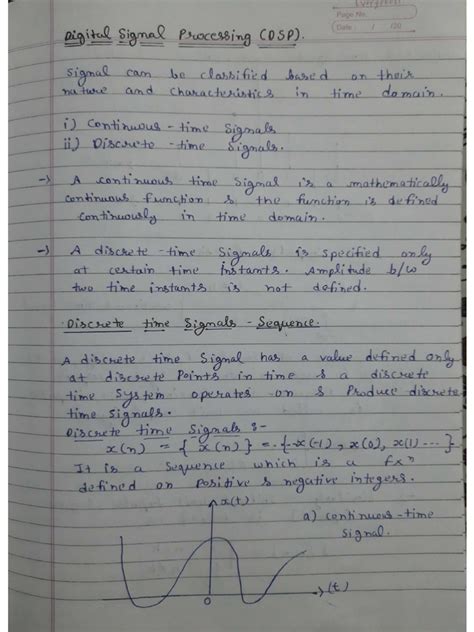 Page No.
Date : / /20
Digital Signal Processing (DSP).
Signal can be classified based on their
nature and characteristics in time domain.
i) Continuous-time Signals
ii) Discrete-time Signals.
→ A continuous time Signal is a mathematically
continuous function & the function is defined
continuously in time domain.
→ A discrete-time Signals is specified only
at certain time instants. Amplitude b/w
two time instants is not defined.
Discrete time Signals - Sequence.
A discrete time Signal has a value defined only
at discrete Points in time & a discrete
time System operates on & Produce discrete
time Signals.
Discrete time Signals :-
x(n) = { x(n) } = {--x(-1), x(0), x(1) ---}
It is a Sequence which is a fxⁿ
defined on Positive & negative integers.
x(t)
a) continuous-time
Signal.
0
(t)